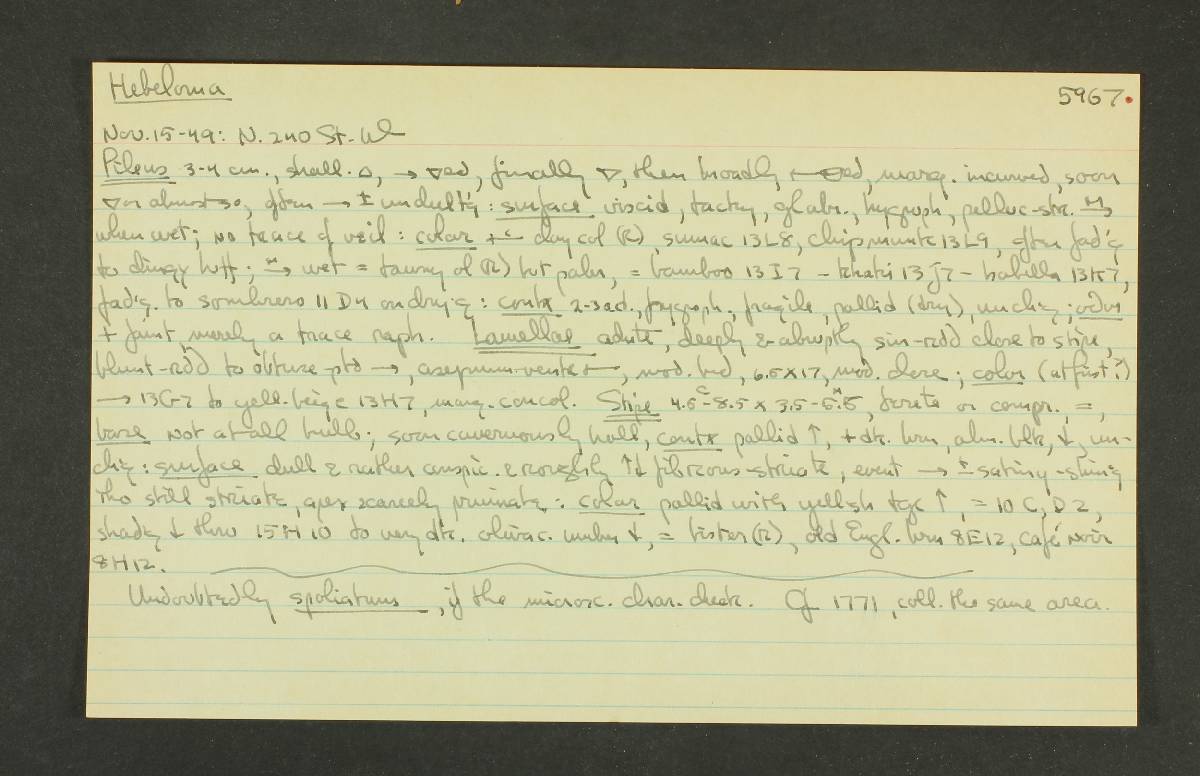 Hebeloma 5967.
Nov. 15-49: N. 240 St. W
Pileus 3-4 cm., shall. △, → ▽ed, finally ▽, then broadly ed, marg. incurved, soon
▽ or almost so, often → ± undult'g: surface viscid, tacky, glabr., hygroph., pelluc-str.
when wet; no trace of veil: color clay col (R), sumac 13L8, chipmunk 13L9, often fad'g
to dingy buff; wet = tawny ol (R) but paler, = bamboo 13I7 - khaki 13J7 - kabilla 13K7,
fad'g. to sombrero 11D4 on dry'g: contx 2-3 , hygroph., fragile, pallid (dry), unchg; odor
+ faint, merely a trace raph. Lamellae adnte, deeply & abruptly sin-rdd close to stipe,
blunt-rdd to obtuse-ptd →, asepmm-ventr, mod. brd, 6.5 x 17, mod. close; color (at first?)
→ 13G7 to yell-beige 13H7, marg. concol. Stipe 4.5-8.5 x 3.5-5.5, terete or compr., =,
base not at all bulb; soon cavernously holl, contx pallid ↑, + dk. brn, alm. blk, ↓, un-
chg: surface dull & rather conspic. & roughly ↑↓ fibrous-striate, event → ± satiny-shin'g
tho still striate, apex scarcely pruinate: color pallid with yellsh tge ↑, = 10 C, D2,
shad'g ↓ thru 15H10 to very dk. olivac. umber ↓, = bister (R), old Engl. brn 8E12, café noir
8H12.
Undoubtedly spoliatum, if the microsc. char. check. Cf 1771, coll. the same area.